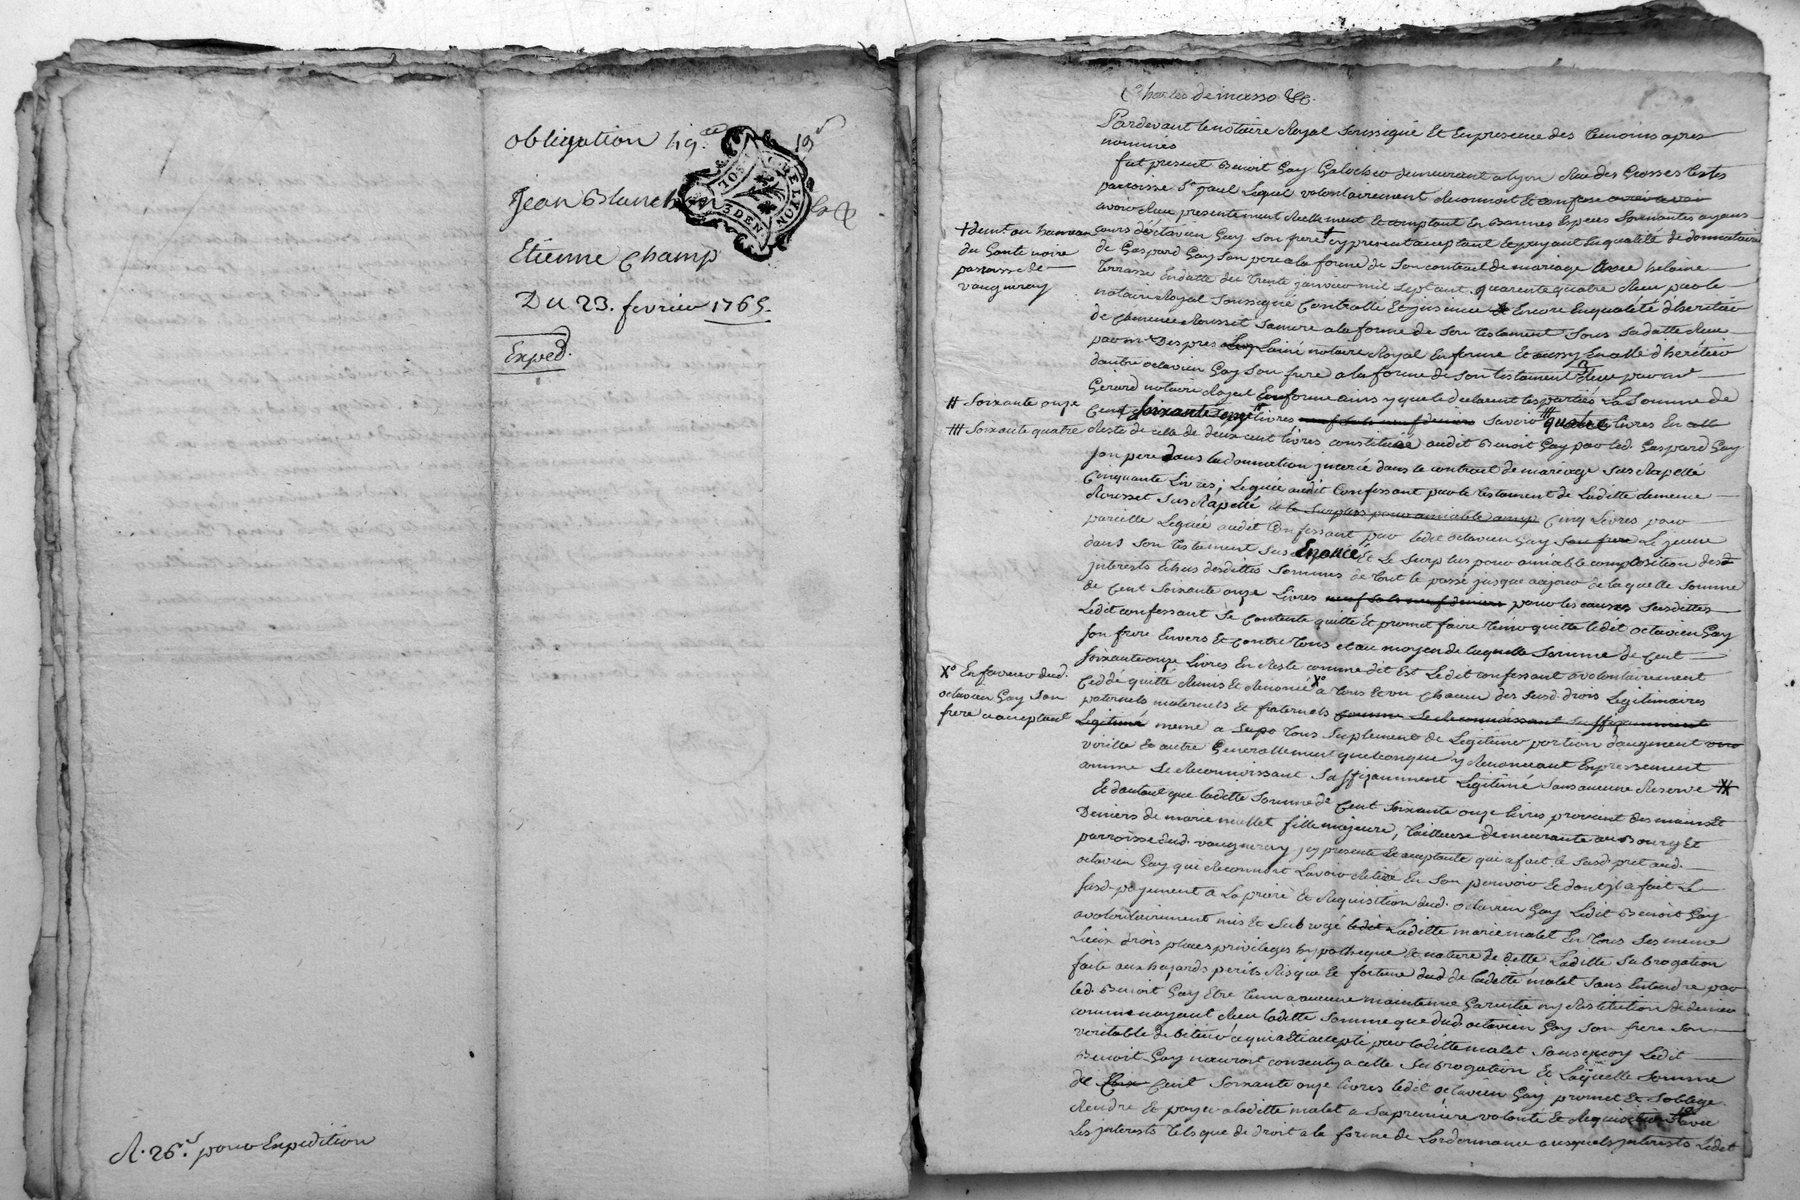 obligation
19
Jean Blanch
GNE. DE LYON
SOL
3 DEN
Etienne Champ
Du 23. fevrier 1765.
Exped.
R. 26s. pour Expedition
Charles demasso &c.
Pardevant le notaire Royal soussigné et en presence des temoins apres
nommés
fut present Benoit Gay Galochier demeurant a lyon Rüe des Grosses testes
paroisse St. paul Lequel volontairement Reconnoit et confesse
avoir Reçu presentement Reellement et comptant en bonnes Especes sonnantes ayans
cours d'octavien Gay son frere † cy present acceptant et payant en qualité de donnataire
† demt. au hameau
du Gonte noire
paroisse de
vaugneray
de Gaspard Gay son pere a la forme de son contract de mariage avec helaine
terrasse en datte du trente janvier mil sept cent quarente quatre Reçu par le
notaire Royal soussigné Controllé et insinué & encore en qualité d'heritier
de Clemence Rousset sa mere a la forme de son testament sous sa datte Reçu
par me. Despres Lainé notaire Royal en forme et aussy en celle d'heritier
d'autre octavien Gay son frere a la forme de son testament Reçu par me.
Gerard notaire Royal en forme ainsy que le declarent les parties La somme de
# Soixante onze
Cent soixante onze # livres neuf sols neuf deniers savoir ### quatre livres en celle
### Soixante quatre
Reste de celle de deux cent livres constituée audit Benoit Gay par led. Gaspard Gay
son pere dans la donnation inserée dans le contrat de mariage sus Rapellé
Cinquante Livres, Leguée audit Confessant par le testament de Laditte demeure
Rousset sus Rapellé et le surplus pour amiable comp Cinq Livres pour
pareille Leguée audit Confessant par ledit octavien Gay son frere Le jeune
dans son testament sus Enoncé et Le surplus pour amiable composition des
interests Echus desdittes sommes de tout le passé jusque aujour de laquelle somme
de Cent soixante onze Livres neuf sols neuf deniers pour les causes susdittes
Ledit confessant se contente quitte et promet faire tenir quitte ledit octavien Gay
son frere Envers et contre tous et au moyen de laquelle somme de Cent
soixante onze Livres En Reste comme dit Est Ledit confessant a volontairement
X° En faveur dud.
octavien Gay son
frere acceptant
Ceddé quitté Remis et Renoncé X° a tous et un chacun des susd. drois Legitimaires
paternels maternels et fraternels comme se Reconnoissant suffizamment
Legitimé meme a tous suplement de Legitime portion d'augment
virille et autre Generallement quelconque y Renonceant Expressement
comme se Reconnoissant suffizamment Legitimé sans aucune Reserve
Et d'autant que laditte somme de Cent soixante onze livres provient des mains et
Deniers de marie mallet fille majeure, tailleuse demeurante au Bourg et
parroisse dud. vaugneray icy presente et acceptante qui a fait le susd. pret aud.
octavien Gay qui Reconnoit L'avoir Retiré En son pouvoir et dont il a fait Le
susd. payement a La priere et Requisition dud. octavien Gay Ledit Benoit Gay
a volontairement mis et subrogé ledit Laditte marie malet En tous ses meme
Lieux drois places privileges hypotheque et nature de dette Laditte subrogation
faite aux hazards perils Risque et fortune dud de laditte malet sans Entendre par
led. Benoit Gay Etre tenu a aucune maintenue Garantie ny Restitution de deniers
comme n'ayant Reçu laditte somme que dud. octavien Gay son frere son
veritable debiteur ce qui a Eté accepté par laditte malet sans quoy Ledit
Benoit Gay n'auroit consenty a cette subrogation Et Laquelle somme
de Cent soixante onze livres ledit octavien Gay promet Et s'oblige
Rendre et payer a laditte malet a sa premiere volonté et Requisition avec
Les interests tels que de droit a la forme de Lordonnance auxquels interests Ledit